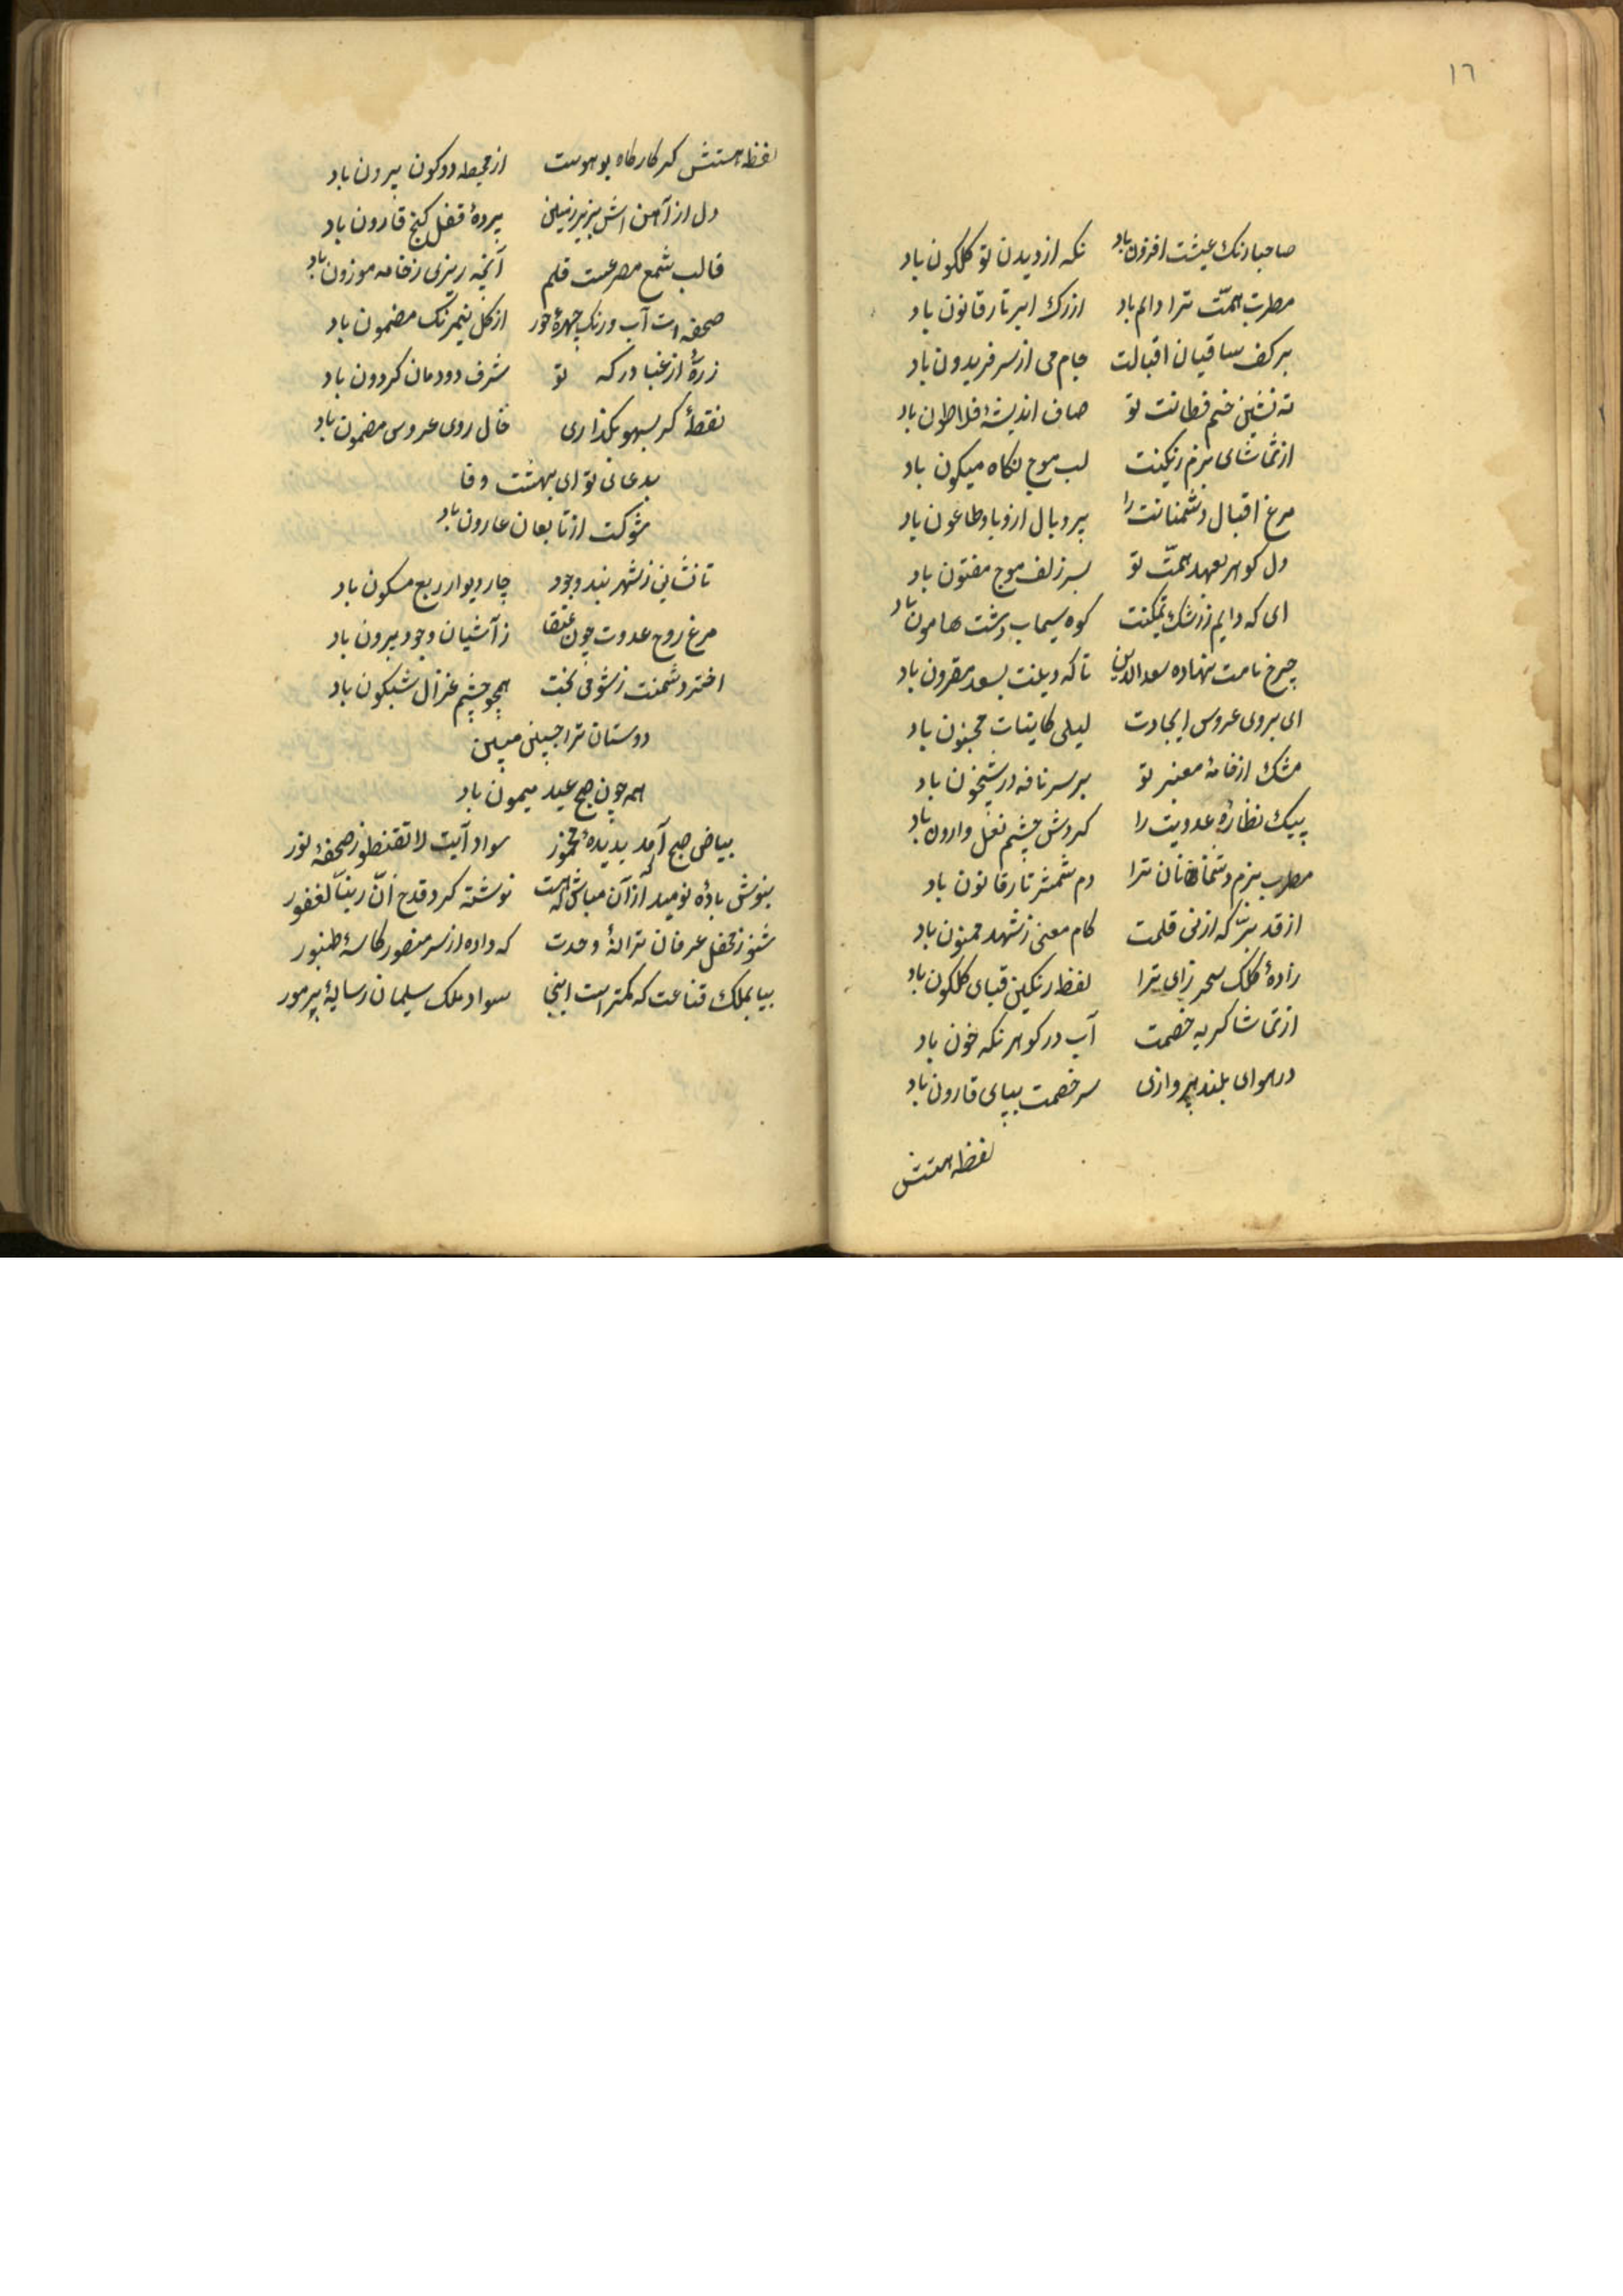 ١٦
صاحبا رنك عیشت افزون باد نکه از دیدن تو کلکون باد
مطرب همّت ترا دایم باد ازرك ابر تار قانون باد
بر کف ساقیان اقبالت جام می از سر فریدون باد
ته نشین خم فطانت تو صاف اندیشۀ فلاطون باد
از تماشای بزم رنکینت لب موج نکاه میکون باد
مرغ اقبال دشمنانت را پر و بال از وبا و طاعون باد
دل کوهر بعهد همّت تو بسر زلف موج مفتون باد
ای که دایم ز رشك تمکینت کوه سیماب دشت هامون باد
چرخ نامت نهاده سعد الدین تا که دیلنت بسعد مقرون باد
ای بروی عروس ایجادت لیلی کاینات مجنون باد
مشك از خامۀ معنبر تو بر سر نافه در شبیخون باد
پیك نظارۀ عدویت را کردش چشم نعل وارون باد
مطرب بزم دشمنان ترا دم شمشر تار قانون باد
از قد نیّ که از نی قلمت کام معنی ز شهد ممنون باد
زادۀ کلک سحر زای ترا لفظ رنکین قبای کلکون باد
از تماشا کریه خصمت آب در کوهر نکه خون باد
در هوای بلند پروازی سر خصمت بپای قارون باد
لفظ همتش
لفظ همتش که کارکاه بو هوست از محیط دو کون بیرون باد
دل از آهن اش بزیر زمین پردۀ قفل کنج قارون باد
قالب شمع مصرعست قلم آنچه ریزی ز خامه موزون باد
صحفه است آب و رنك چهرۀ حور از کل نیمرنك مضمون باد
زرۀ از غبار درکه تو شرف دودمان کردون باد
نقطۀ کر بسهو بکذاری خال روی عروس مضمون باد
بدعای تو ای بهشت وفا
شوکت از تابعان عارون باد
تا نشانی ز شهر بند وجود چار دیوار ربع مسکون باد
مرغ روح عدوت چون عنقا ز آشیان وجود بیرون باد
اختر دشمنت ز شوخی بخت همچو چشم غزال شبکون باد
دوستان ترا جبین مبین
همه چون صبح عید میمون باد
بیاض صبح آمد بدیدۀ مخمور سواد آیت لا تقنطو ز صحفۀ نور
بنوش باده نومید از آن مباش که هست نوشته کرد قدح انّ ربنّا لغفور
شنو ز محفل عرفان ترانۀ وحدت که داده از سر منصور کاسۀ طنبور
بیا بملك قناعت که کمتر است اینجا سواد ملک سلیمان ز سایۀ پر مور